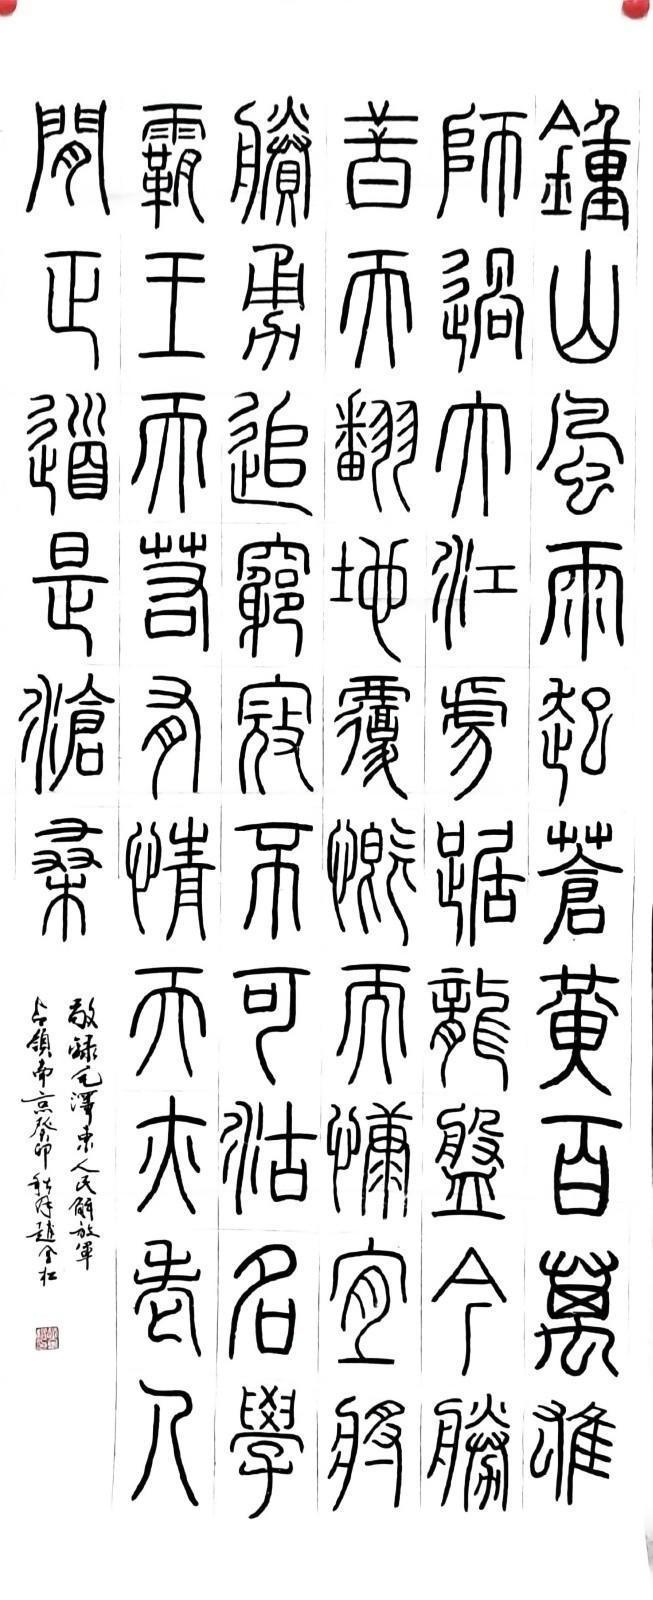 鍾山風雨起蒼黃百萬雄
師過大江虎踞龍盤今勝
昔天翻地覆慨而慷宜將
賸勇追窮寇不可沽名學
霸王天若有情天亦老人
閒正道是滄桑
敬錄毛澤東人民解放軍
占領南京癸卯秋月趙全松